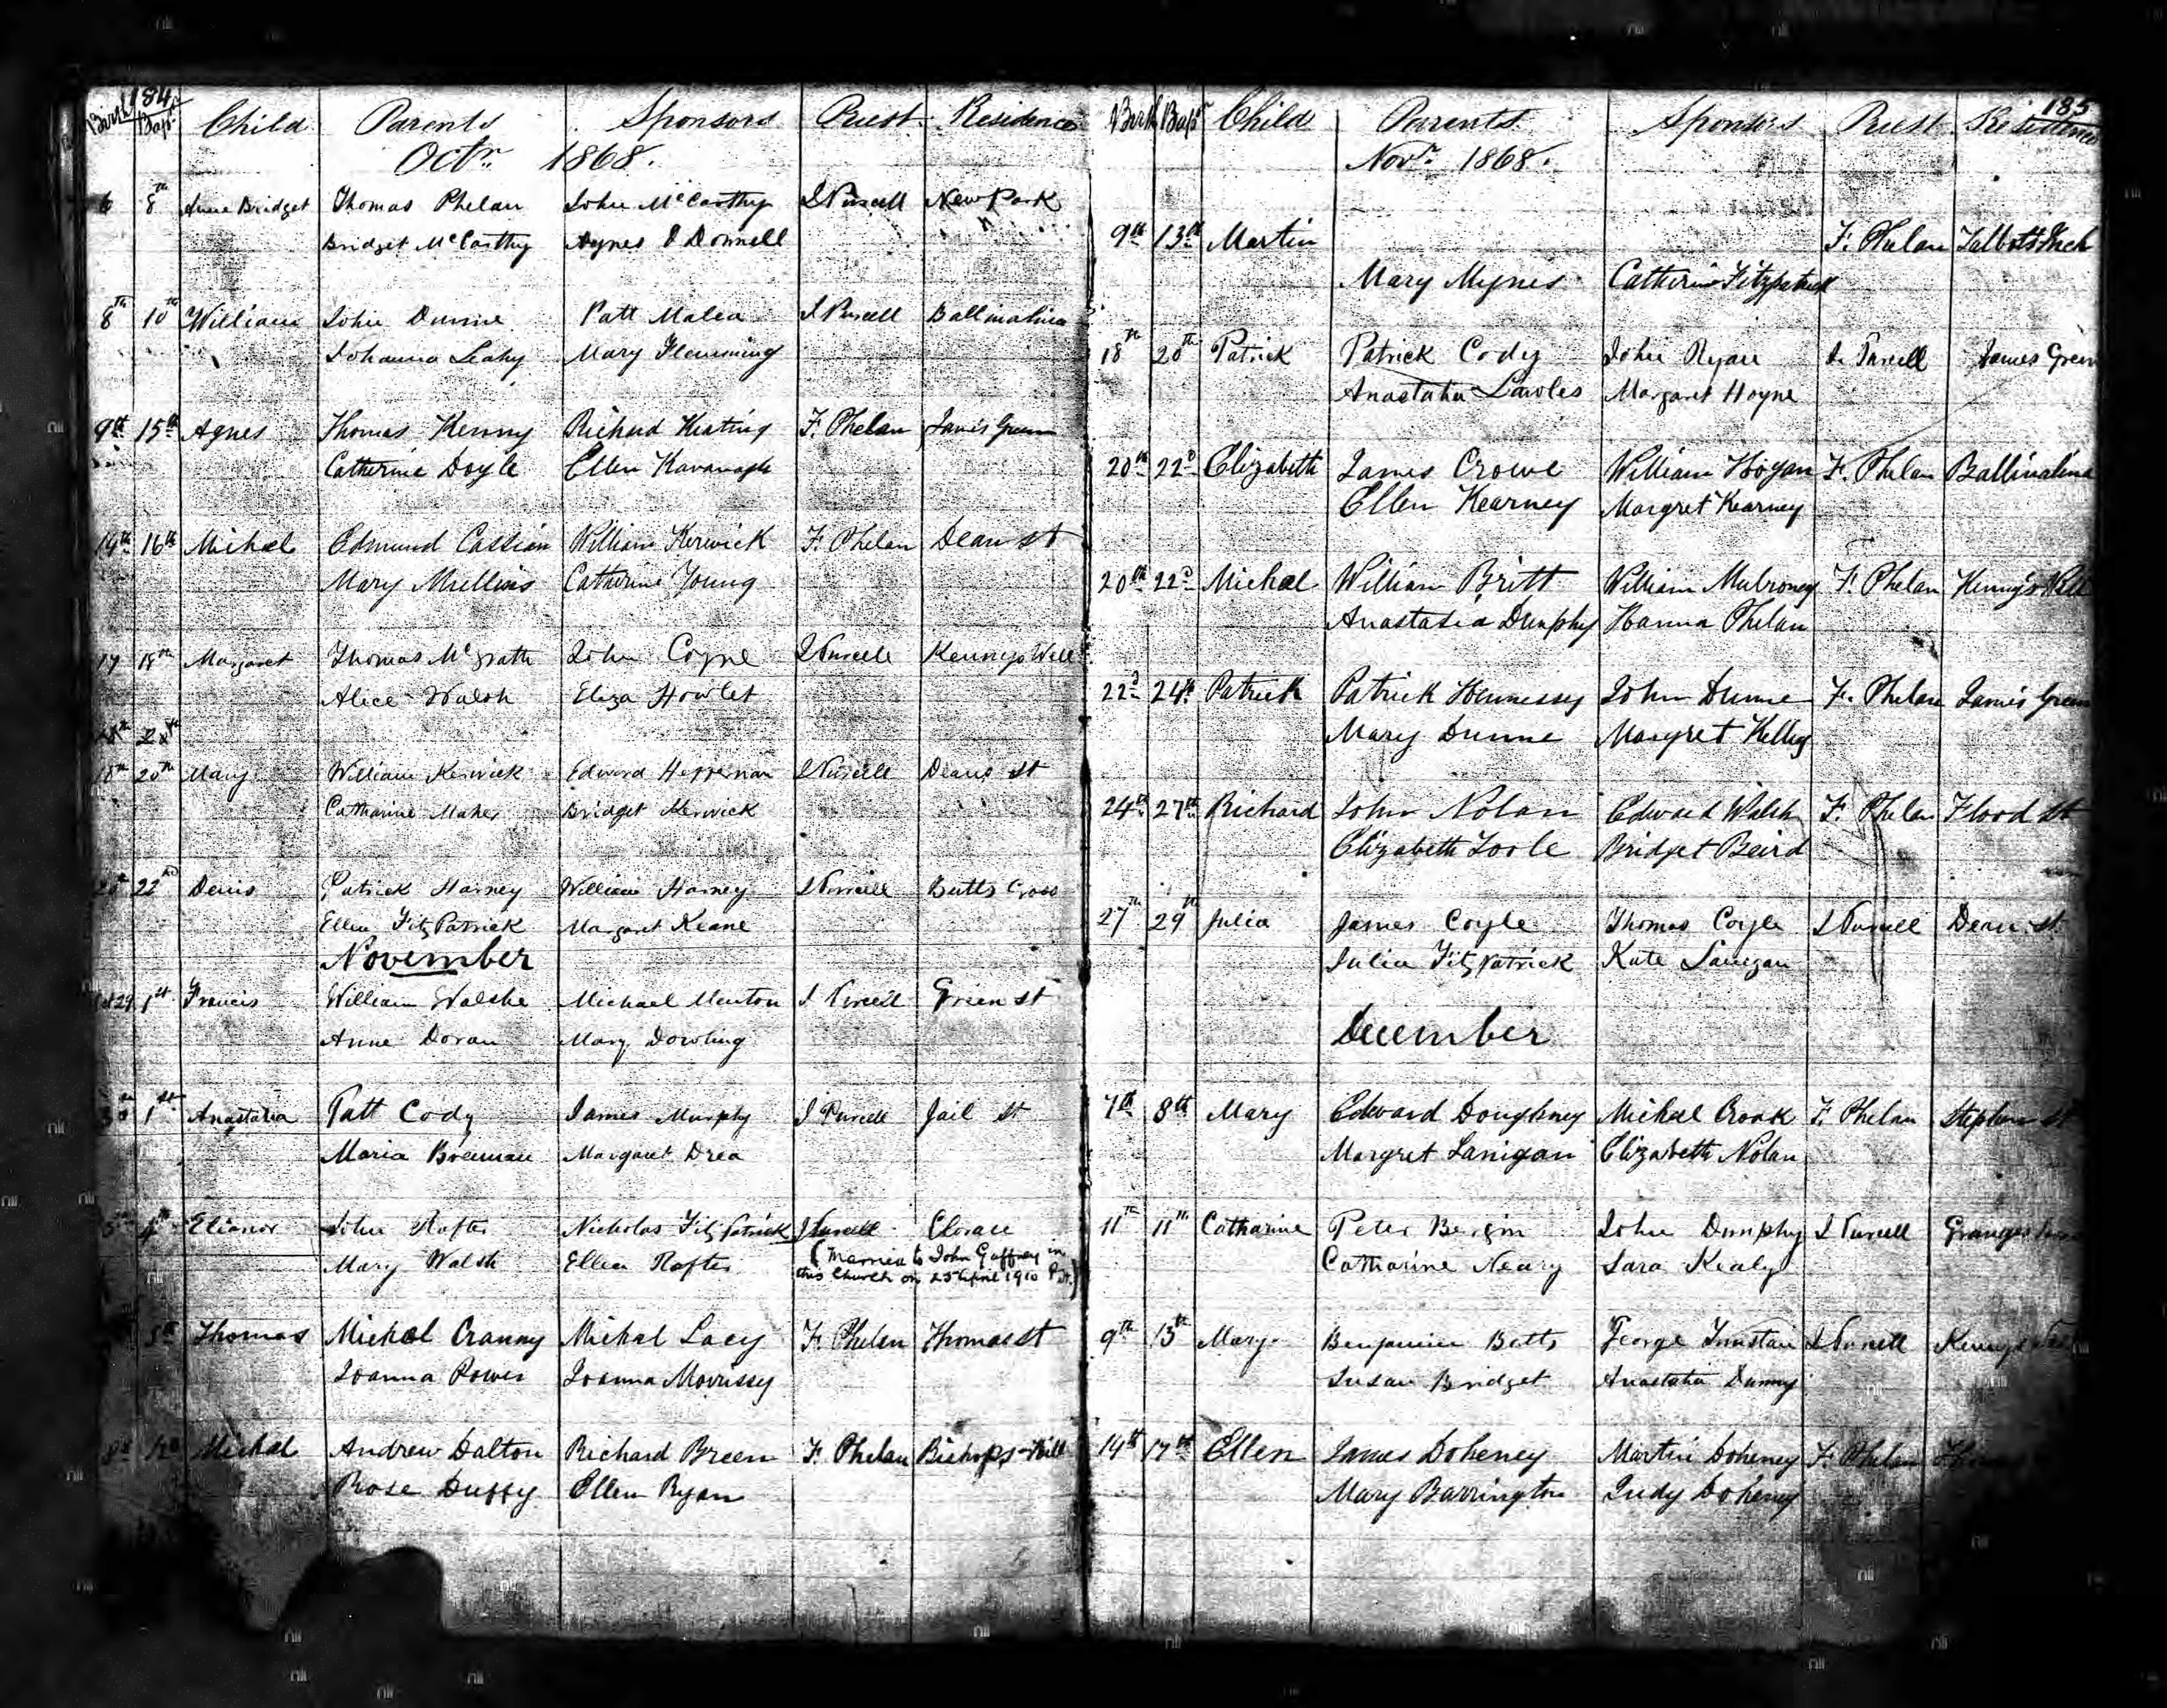 184
Birth Bapt. Child Parents Sponsors Priest Residence
Octr. 1868.
6 8th Anne Bridget Thomas Phelan John McCarthy J Purcell New Park
Bridget McCarthy Agnes O Donnell
8th 10th William John Dunne Patt Malea J Purcell Ballinalina
Johanna Leahy Mary Flemming
9th 15th Agnes Thomas Kenny Richard Keating F. Phelan James Green
Catherine Doyle Ellen Kavanagh
14th 16th Michal Edmund Cassian William Kerwick F. Phelan Dean St
Mary Mullins Catherine Young
17 18th Margaret Thomas McGrath John Coyne J Purcell Kennys Well
Alice Walsh Eliza Howlet
18th 20th Mary William Kerwick Edward Heffernan J Purcell Deans St
Catharine Maher Bridget Kerwick
20th 22nd Denis Patrick Harney William Harney J Purcell Butts Cross
Ellen FitzPatrick Margaret Keane
November
29 1st Francis William Walshe Michael Menton J Purcell Green St
Anne Doran Mary Dowling
30 1st Anastatia Patt Cody James Murphy J Purcell Jail St
Maria Brennan Margaret Drea
3rd 4th Elianor John Rafter Nicholas FitzPatrick J Purcell Clorace
Mary Walsh Ellen Rafter (Married to John Gaffney in
this Church on 25th April 1910
8th Thomas Michael Cranny Michal Lacy F. Phelan Thomas St
Joanna Power Joanna Morrissy
8th 12th Michal Andrew Dalton Richard Breen F. Phelan Bishops-Hill
Rose Duffy Ellen Ryan
185
Birth Bapt Child Parents Sponsors Priest Residence
Novr. 1868.
9th 13th Martin F. Phelan Talbotts Inch
Mary Mynes Catherine Fitzpatrick
18th 20th Patrick Patrick Cody John Ryan J. Purcell James Green
Anastatia Lawles Margaret Hoyne
20th 22d Elizabeth James Crowe William Hogan F. Phelan Ballinalina
Ellen Kearney Margret Kearney
20th 22d Michal William Britt William Mulroney F. Phelan Kenny's Well
Anastasia Dunphy Hanna Phelan
22d 24th Patrick Patrick Hennessy John Dunne F. Phelan James Green
Mary Dunne Margret Kelly
24th 27th Richard John Nolan Edward Walsh F. Phelan Flood St
Elizabeth Toole Bridget Beird
27th 29th Julia James Coyle Thomas Coyle J Purcell Dean St
Julia Fitzpatrick Kate Lanigan
December
7th 8th Mary Edward Doughney Michael Croak F. Phelan Stephen St
Margret Lanigan Elizabeth Nolan
11th 11th Catharine Peter Bergin John Dunphy J Purcell Granges
Catharine Neary Sara Kealy
9th 13th Mary Benjamin Batts George J Purcell Kennys
Susan Bridget Anastatia Dunny
14th 17th Ellen James Doheney Martin Doheney F. Phelan
Mary Barrington Judy Doheney